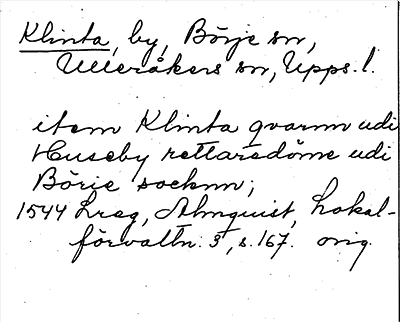 Klinta, by, Börje sn,
Ulleråkers sn, Upps. l.
item Klinta qvarnn udi
Huseby rettaredöme udi
Börje socknn;
1544 Lreg, Almquist, Lokal-
förvaltn. 3, s. 167. orig.